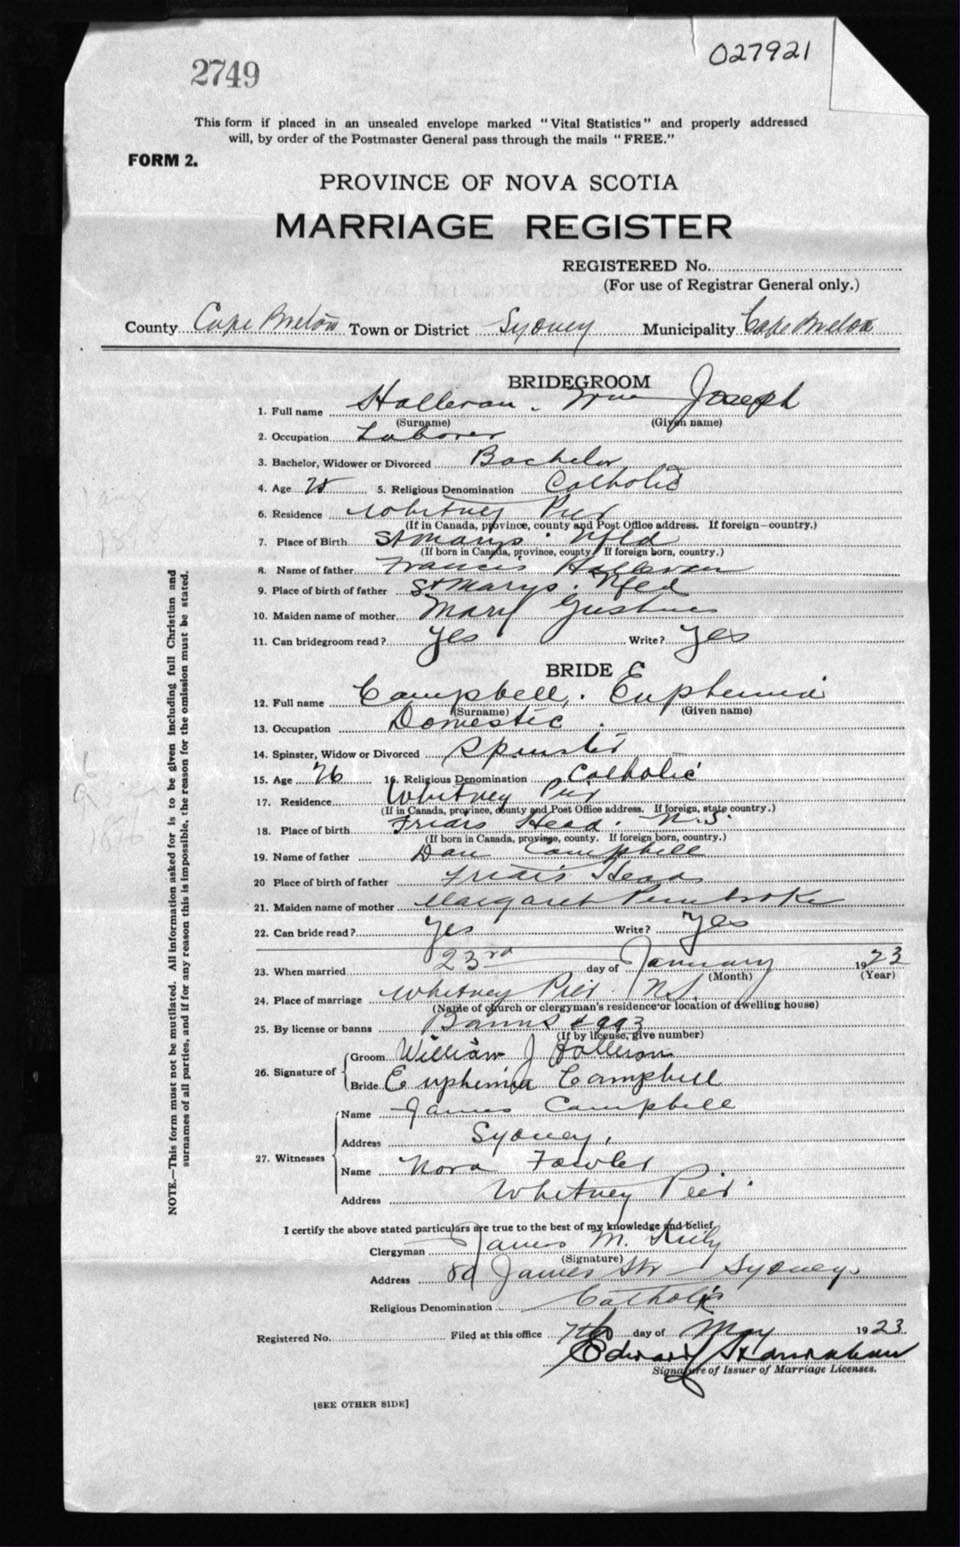 027921
2749
This form if placed in an unsealed envelope marked "Vital Statistics" and properly addressed
will, by order of the Postmaster General pass through the mails "FREE."
FORM 2.
PROVINCE OF NOVA SCOTIA
MARRIAGE REGISTER
REGISTERED No.
(For use of Registrar General only.)
County Cape Breton Town or District Sydney Municipality Cape Breton
BRIDEGROOM
1. Full name Halleran. Wm Joseph
(Surname) (Given name)
2. Occupation Laborer
3. Bachelor, Widower or Divorced Bachelor
4. Age 5. Religious Denomination Catholic
6. Residence Whitney Pier
(If in Canada, province, county and Post Office address. If foreign—country.)
7. Place of Birth St Marys. Nfld
(If born in Canada, province, county. If foreign born, country.)
8. Name of father Francis Halleran
9. Place of birth of father St Marys. Nfld
10. Maiden name of mother Mary
11. Can bridegroom read? Yes Write? Yes
BRIDE
12. Full name Campbell. Euphemia
(Surname) (Given name)
13. Occupation Domestic.
14. Spinster, Widow or Divorced Spinster
15. Age 26 16. Religious Denomination Catholic
17. Residence Whitney Pier
(If in Canada, province, county and Post Office address. If foreign, state country.)
18. Place of birth Friars Head. N.S.
(If born in Canada, province, county. If foreign born, country.)
19. Name of father Dan Campbell
20 Place of birth of father Friars Head
21. Maiden name of mother Margaret Pembroke
22. Can bride read? Yes Write? Yes
23. When married 23rd day of January 1923
(Month) (Year)
24. Place of marriage Whitney Pier N.S.
(Name of church or clergyman's residence or location of dwelling house)
25. By license or banns Banns
(If by license, give number)
26. Signature of Groom William J Halleran
Bride Euphemia Campbell
27. Witnesses Name James Campbell
Address Sydney.
Name Nora Fowler
Address Whitney Pier.
I certify the above stated particulars are true to the best of my knowledge and belief
Clergyman James M.
(Signature)
Address James St Sydney.
Religious Denomination Catholic
Registered No. Filed at this office 7th day of May 1923
Edward Hanrahan
Signature of Issuer of Marriage Licenses.
[SEE OTHER SIDE]
NOTE.—This form must not be mutilated. All information asked for is to be given including full Christian and
surnames of all parties, and if for any reason this is impossible, the reason for the omission must be stated.